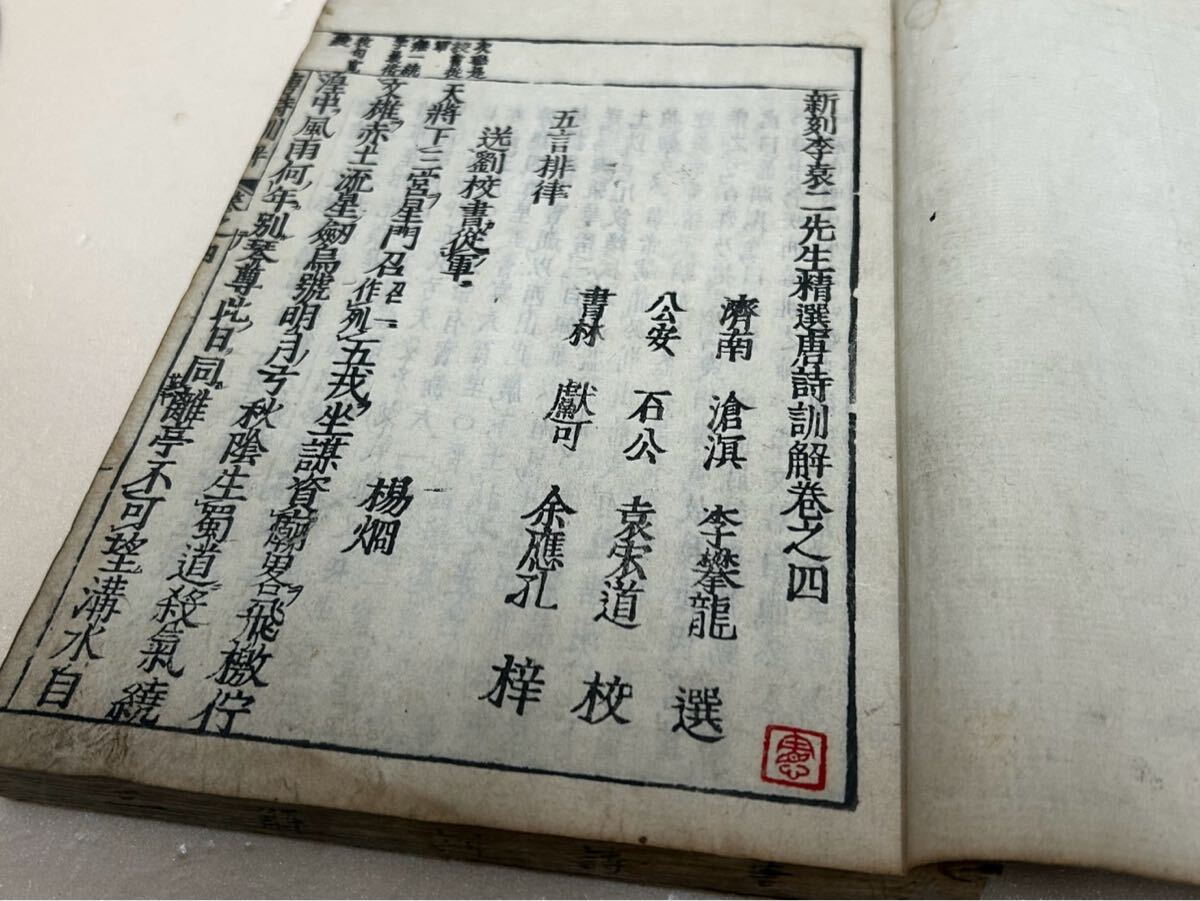 新刻李袁二先生精選唐詩訓解卷之四
濟南 滄溟 李攀龍 選
公安 石公 袁宏道 校
書林 獻可 余應孔 梓
五言排律
送劉校書從軍 楊烱
次聯是
校書從
軍
天將下三宮星門召召一作列五戎坐謀資廟畧飛檄佇
文雄赤土流星劒烏號明月弓秋陰生蜀道殺氣繞
湟中風雨何年別琴尊此日同離亭不可望溝水自
唐詩訓解 卷之四